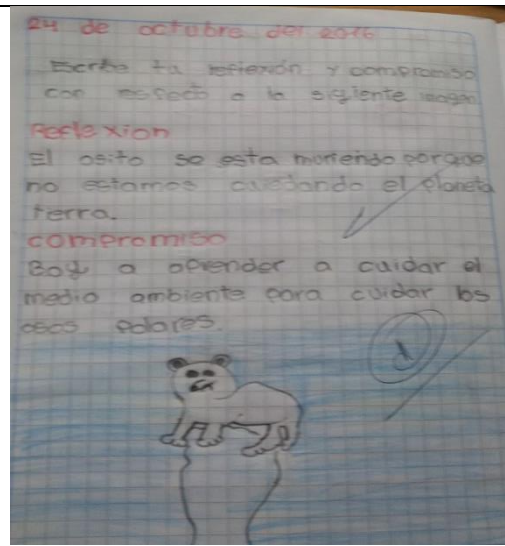 24 de octubre del 2016
Escribe tu reflexión y compromiso
con respecto a la sigiente
Reflexion
El osito se esta moriendo porque
no estamos cuidando el planeta
terra.
compromiso
Boy a aprender a cuidar el
medio ambiente para cuidar los
osos polares.